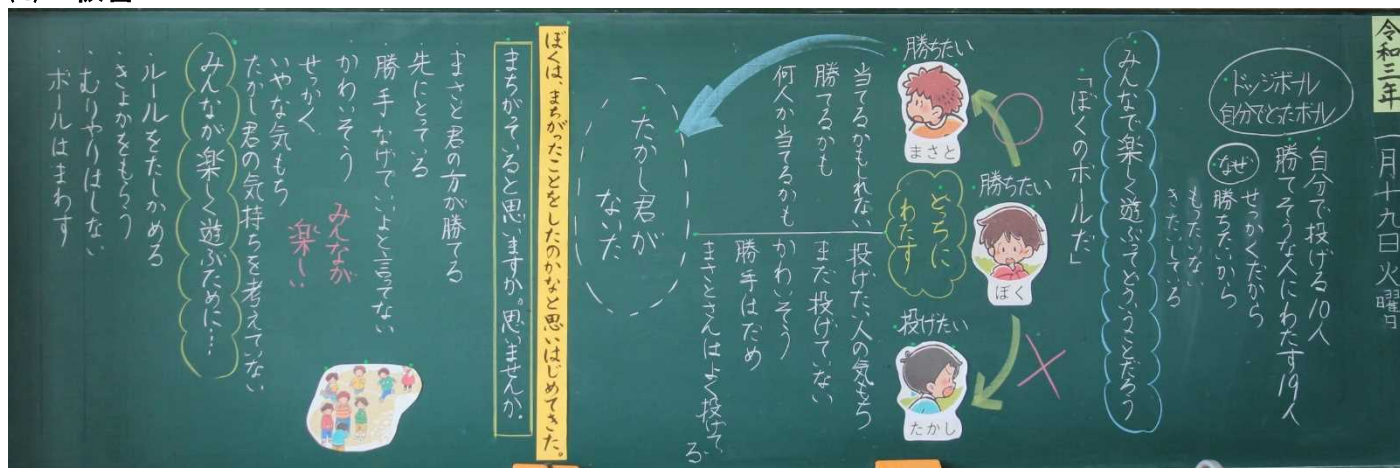 令和三年
一月十九日火曜日
ドッジボール
自分でとったボール
自分で投げる10人
勝てそうな人にわたす19人
なぜ
せっかくだから
勝ちたいから
もったいない
きたいしている
みんなで楽しく遊ぶってどういうことだろう
「ぼくのボールだ」
勝ちたい
まさと
勝ちたい
ぼく
投げたい
たかし
どちらに
わたす
当てるかもしれない
勝てるかも
何人か当てるかも
投げたい人の気もち
まだ投げていない
かわいそう
勝手はだめ
まさとさんはよく投げてる
たかし君が
ないた
ぼくは、まちがったことをしたのかなと思いはじめてきた。
まちがっていると思いますか。思いませんか。
まさと君の方が勝てる
先にとっている
勝手なげていいよと言ってない
かわいそう
せっかく
いやな気もち
たかし君の気持ちを考えていない
みんなが
楽しい
みんなが楽しく遊ぶために…
・ルールをたしかめる
・きょかをもらう
・むりやりはしない
・ボールはまわす